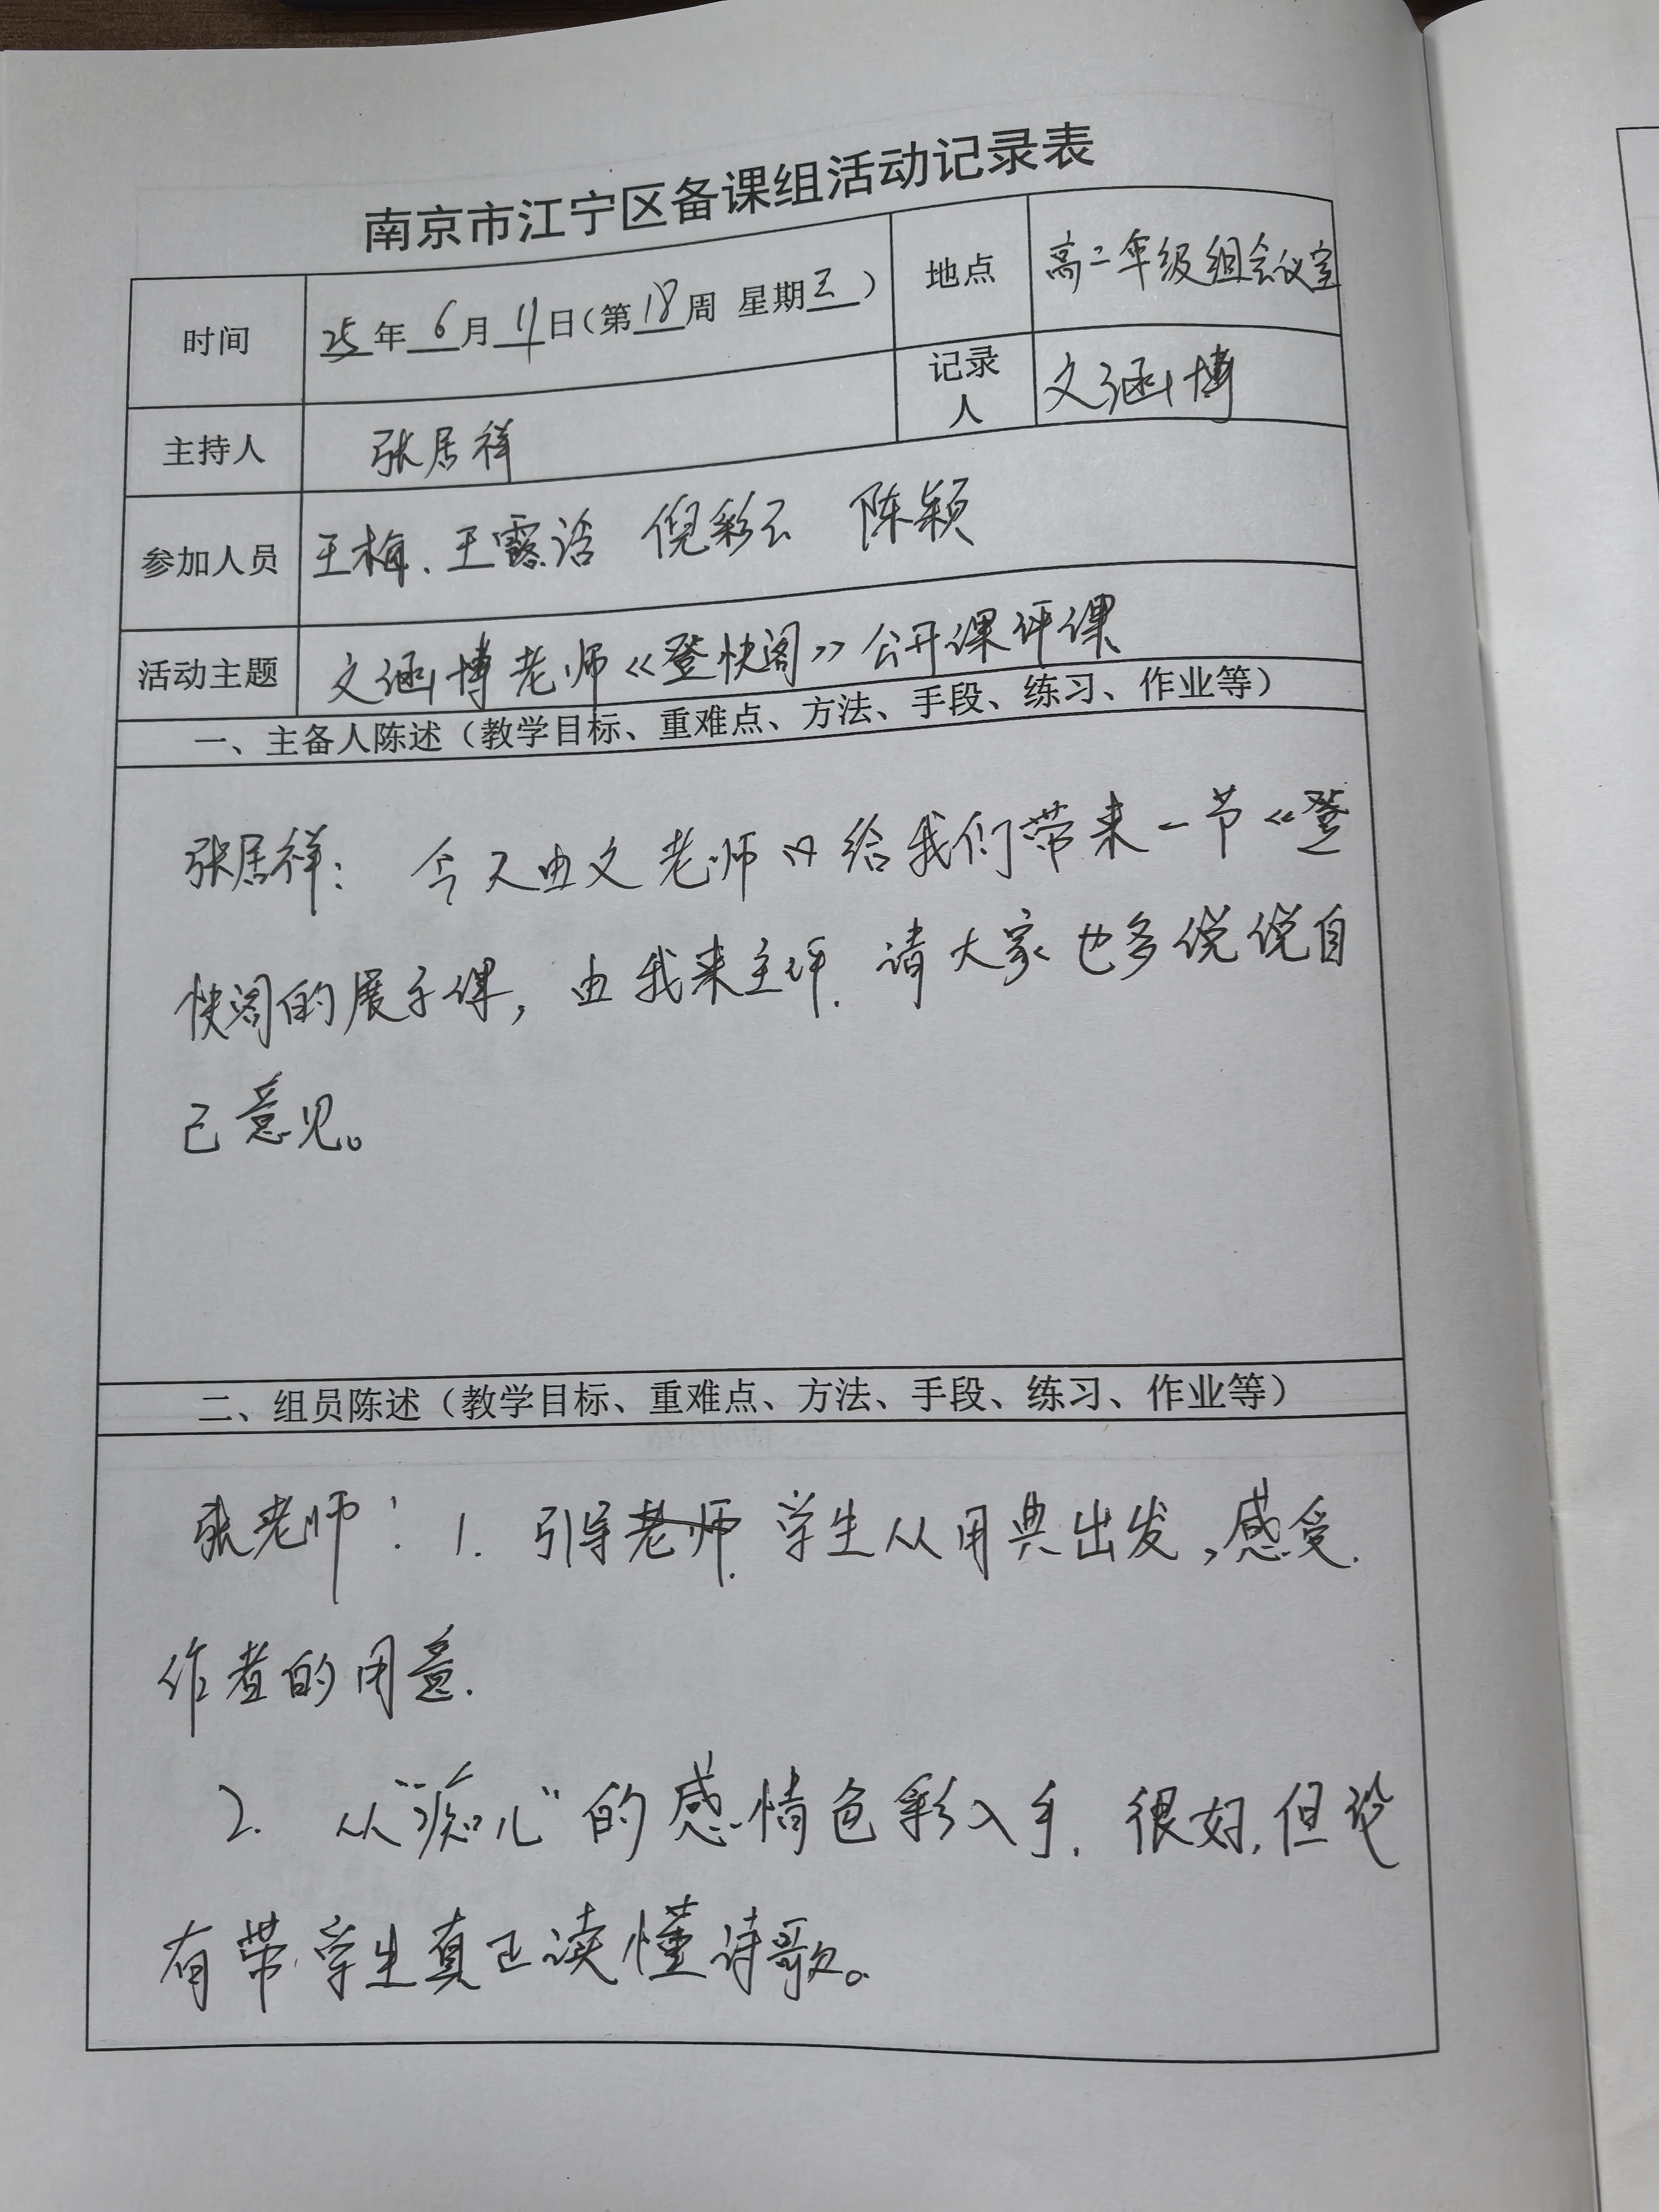 南京市江宁区备课组活动记录表
时间 25年6月11日(第18周 星期三) 地点 高二年级组会议室
主持人 张居祥 记录人 文涵博
参加人员 王梅、王露洁 倪彩云 陈颖
活动主题 文涵博老师《登快阁》公开课评课
一、主备人陈述（教学目标、重难点、方法、手段、练习、作业等）
张居祥： 今天由文老师 给我们带来一节《登
快阁的展示课，由我来主评.请大家也多说说自
己意见。
二、组员陈述（教学目标、重难点、方法、手段、练习、作业等）
张老师：1. 引导老师.学生从用典出发,感受.
作者的用意.
2. 从“痴儿”的感情色彩入手.很好,但没
有带学生真正读懂诗歌。